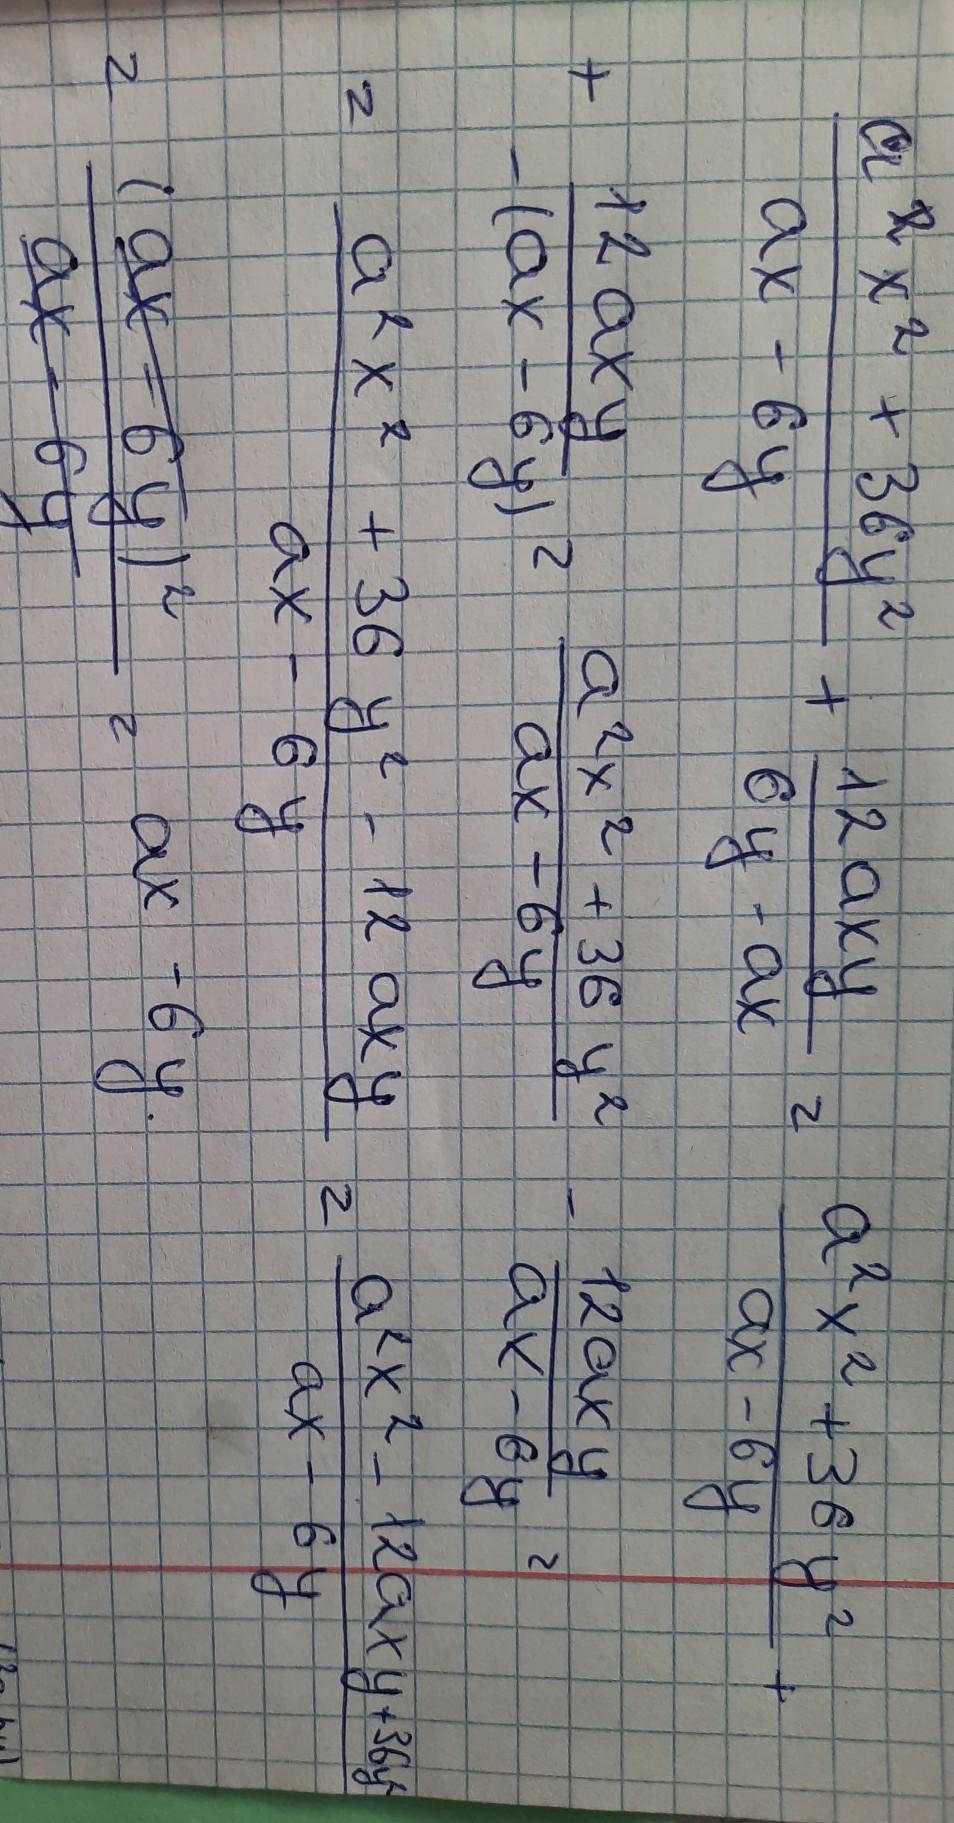 (a²x² + 36y²)/(ax - 6y) + 12axy/(6y - ax) = (a²x² + 36y²)/(ax - 6y) +
+ 12axy/-(ax - 6y) = (a²x² + 36y²)/(ax - 6y) - 12axy/(ax - 6y) =
= (a²x² + 36y² - 12axy)/(ax - 6y) = (a²x² - 12axy + 36y²)/(ax - 6y)
= (ax - 6y)²/(ax - 6y) = ax - 6y.